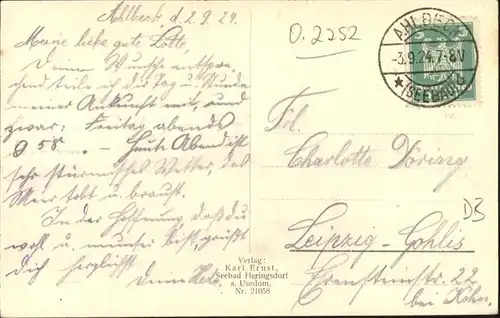 Ahlbeck, d. 2.9.24.
Meine liebe gute Lotte,
Deinem Wunsche entspre
chend teile ich dir Tag u. Stunde
meiner Ankunft mit, und
zwar: Freitag abends
9 58. - Heute Abend ist
sehr stürmisches Wetter, das
Meer tobt u. braust.
In der Hoffnung, daß du
wohl u. munter bist, grüßt
dich herzlichst
Dein
O.2252
AHLBECK
-3.9.24.7-8V
(SEEBAD)
Frl.
Charlotte Döring
D3
Leipzig-Gohlis
22
bei Hahn.
Verlag:
Karl Ernst,
Seebad Heringsdorf
a. Usedom.
Nr. 21058